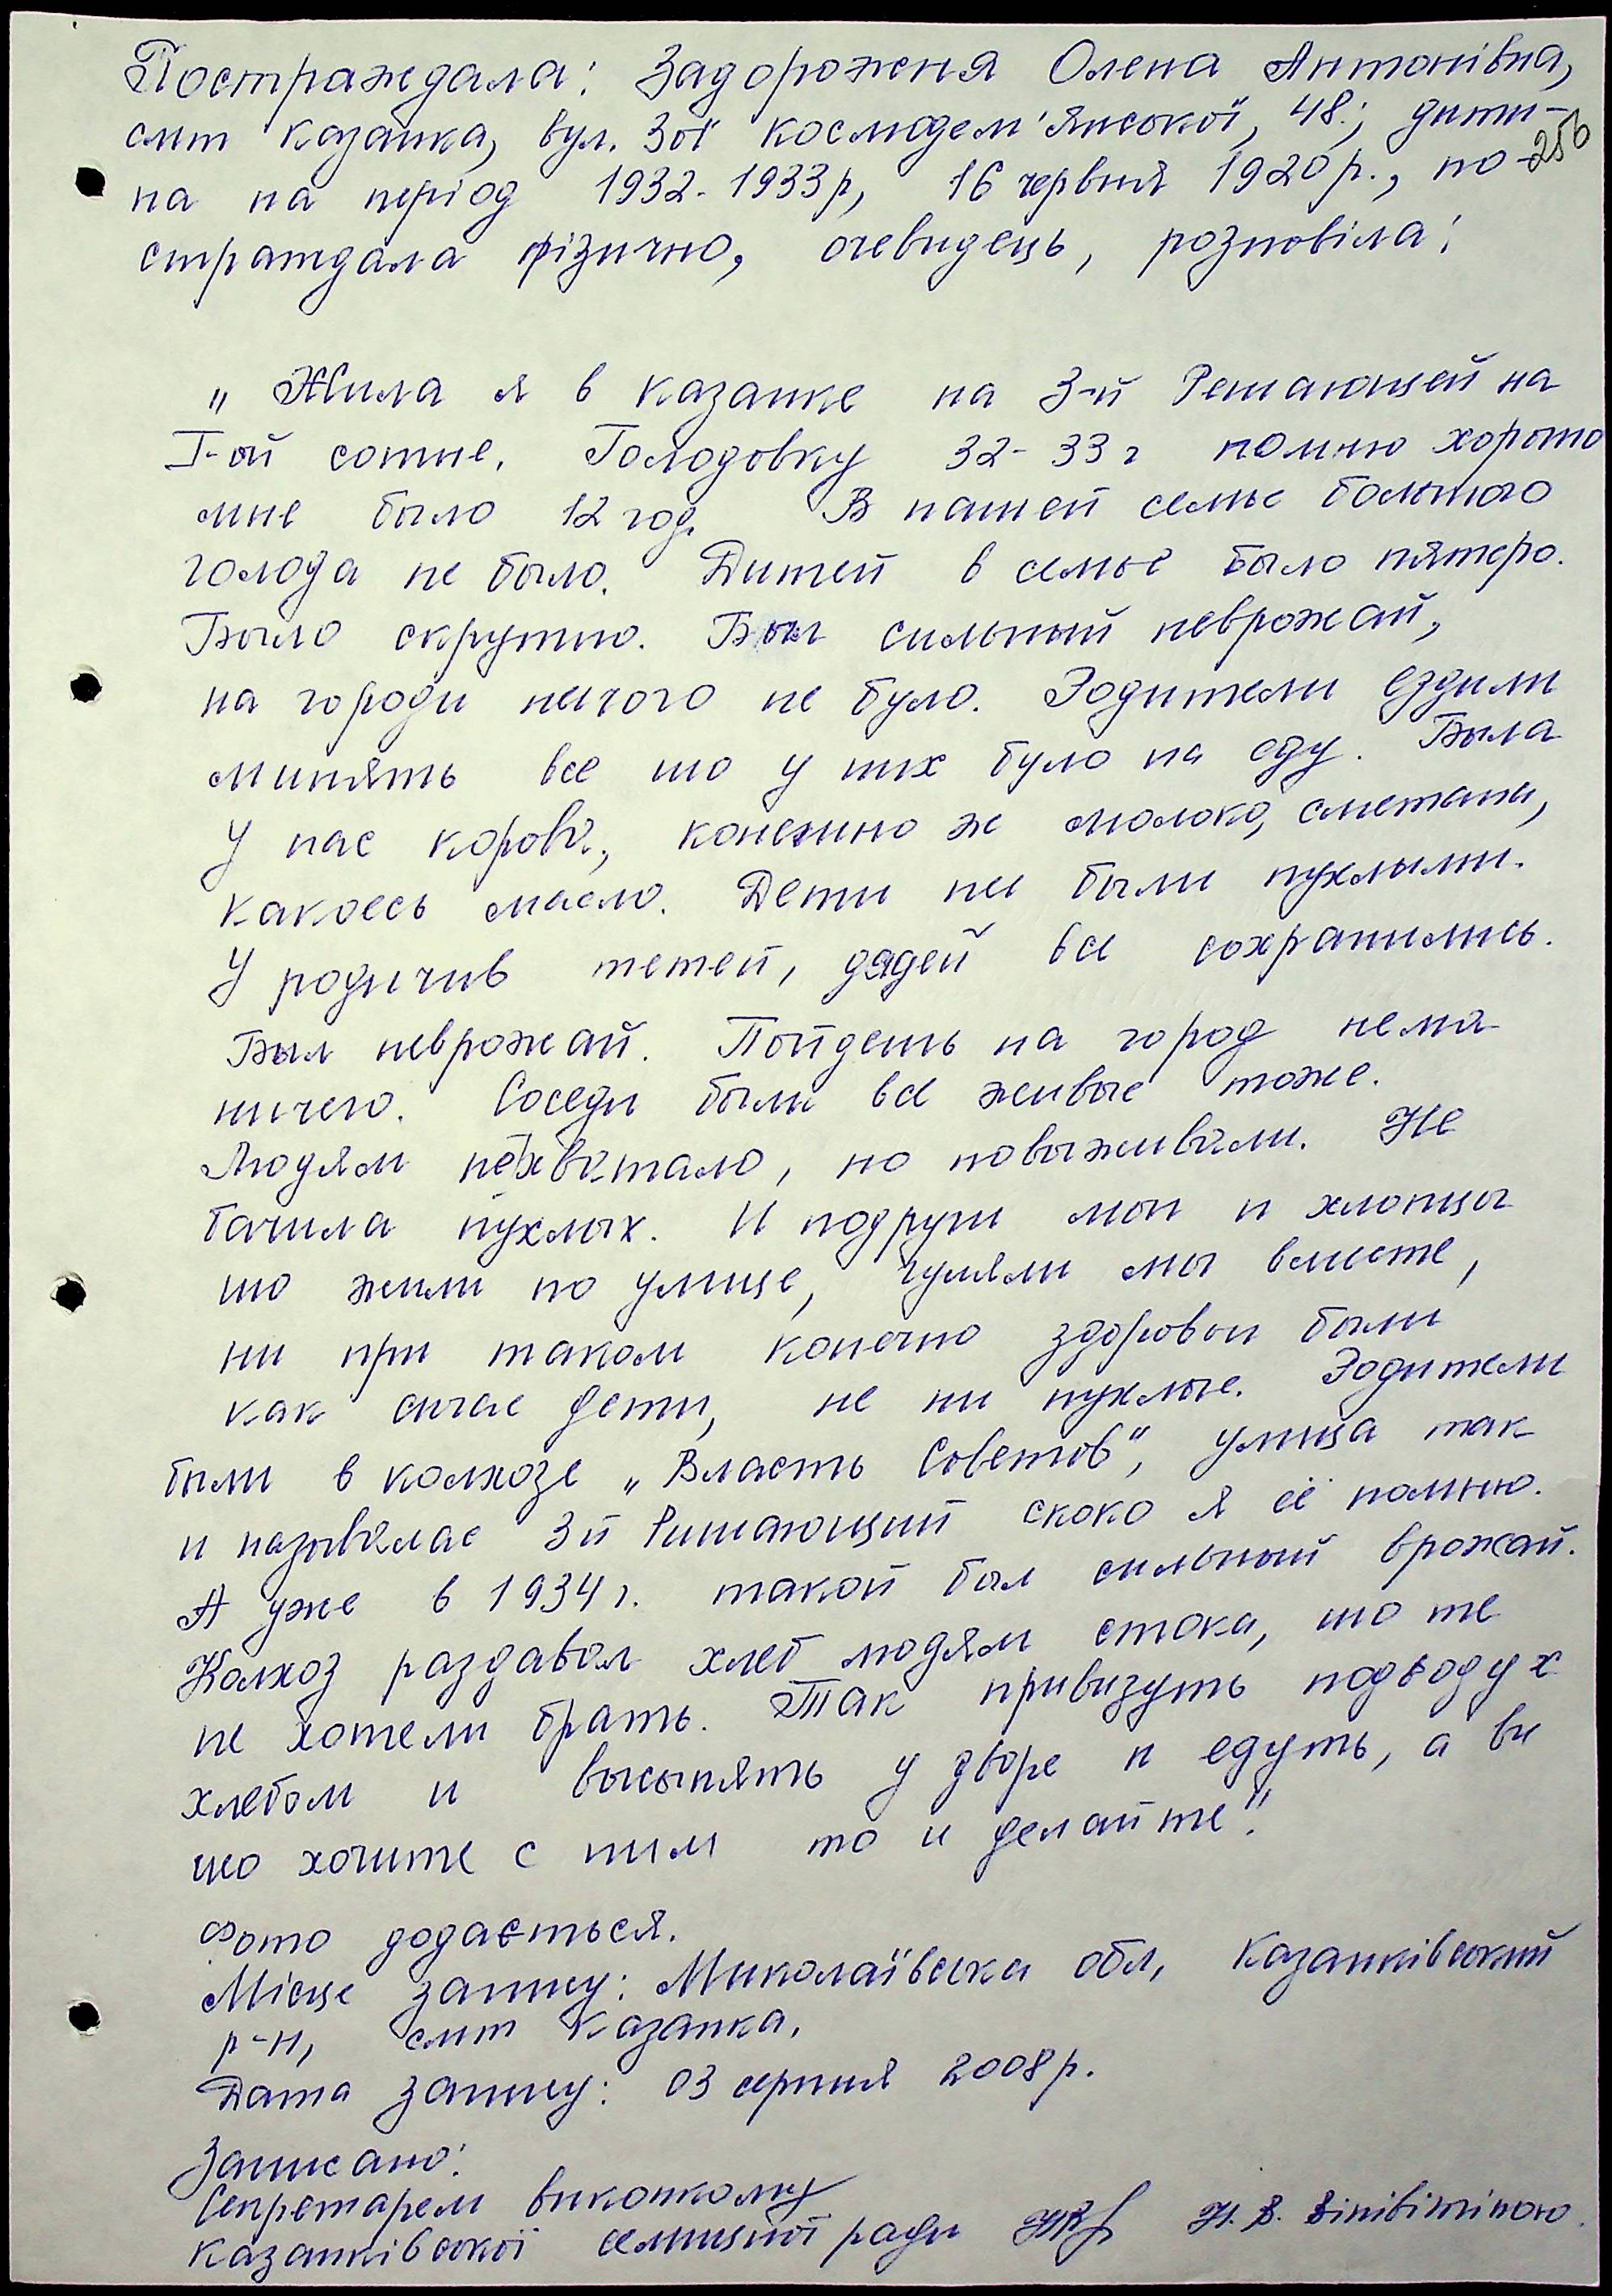 Постраждала: Задорожня Олена Антонівна,
смт Казанка, вул. Зої Космодем'янської, 48.; дити-
256
на на період 1932-1933р, 16 червня 1920р., по-
страждала фізично, очевидець, розповіла:
„Жила я в Казанке на 3-й Решающей на
I-ой сотне. Голодовку 32-33 г помню хорошо
мне было 12 год. В нашей семье большого
голода не было. Дитей в семье было пятеро.
Было скрутно. Был сильный неврожай,
на городи ничого не було. Родители ездили
минять все шо у них було на еду. Была
у нас корова, конешно ж молоко, сметана,
какоесь масло. Дети ни были пухлыми.
У родичив тетей, дядей все сохранились.
Был неврожай. Пойдешь на город нема
ничего. Соседи были все живые тоже.
Людям нехватало, но повыживали. Не
бачила пухлых. И подруги мои и хлопцы
шо жили по улице, гуляли мы вместе,
ни при таком конечно здоровьи были
как сичас дети, не ни пухлые. Родители
были в колхозе „Власть Советов", улица так
и називалас 3й Ришающий скоко я её помню.
А уже в 1934г. такой был сильный врожай.
Колхоз раздавал хлеб людям стока, шо те
не хотели брать. Так привизуть подводу х
хлебом и высыпять у дворе и едуть, а ви
шо хочите с ним то и делайте".
Фото додається.
Місце запису: Миколаївська обл, Казанківський
р-н, смт Казанка.
Дата запису: 03 серпня 2008р.
Записано:
Секретарем виконкому
Казанківської селищної ради Н. В.